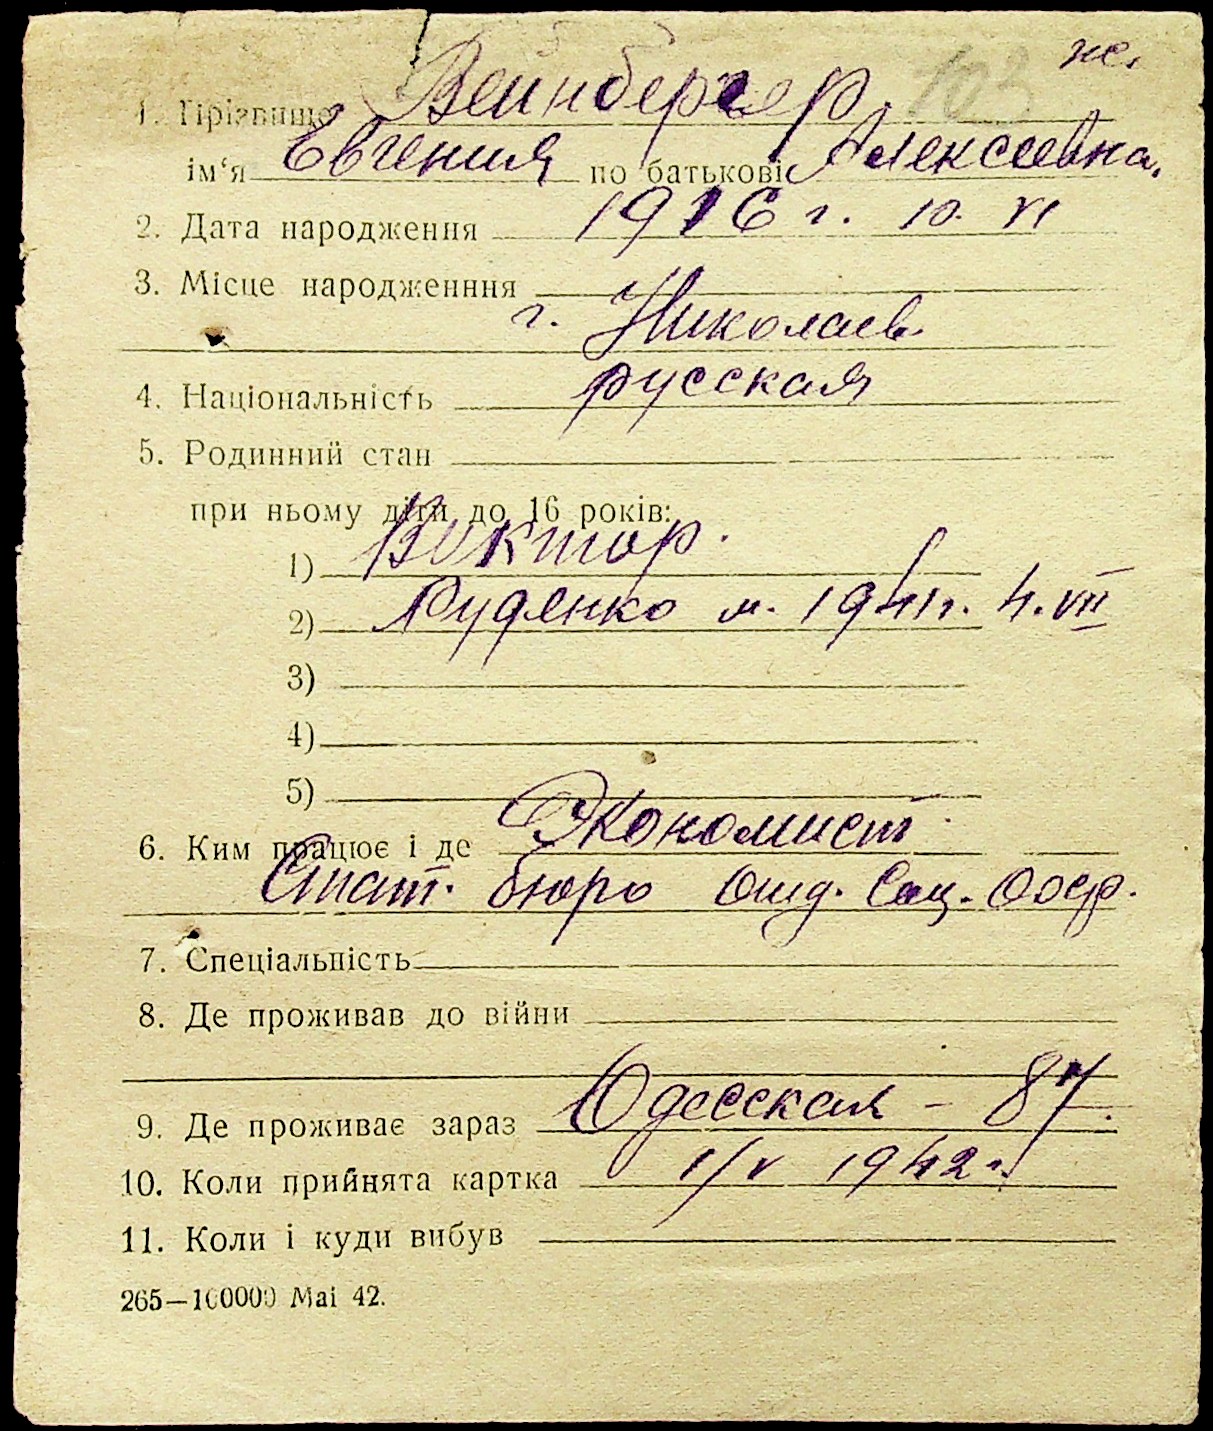 103 же.
1. Прізвище Вейнбергер
ім'я Евгения по батькові Алексеевна.
2. Дата народження 1916 г. 10. VI
3. Місце народженння
г. Николаев.
4. Національність русская
5. Родинний стан
при ньому діти до 16 років:
1) Виктор.
2) Руденко м. 1941 г. 4. VII
3)
4)
5)
6. Ким працює і де Экономист
Стат. бюро Отд. Соц.
7. Спеціальність
8. Де проживав до війни
9. Де проживає зараз Одесская - 87.
10. Коли прийнята картка 1/V 1942 г.
11. Коли і куди вибув
265—100000 Маі 42.